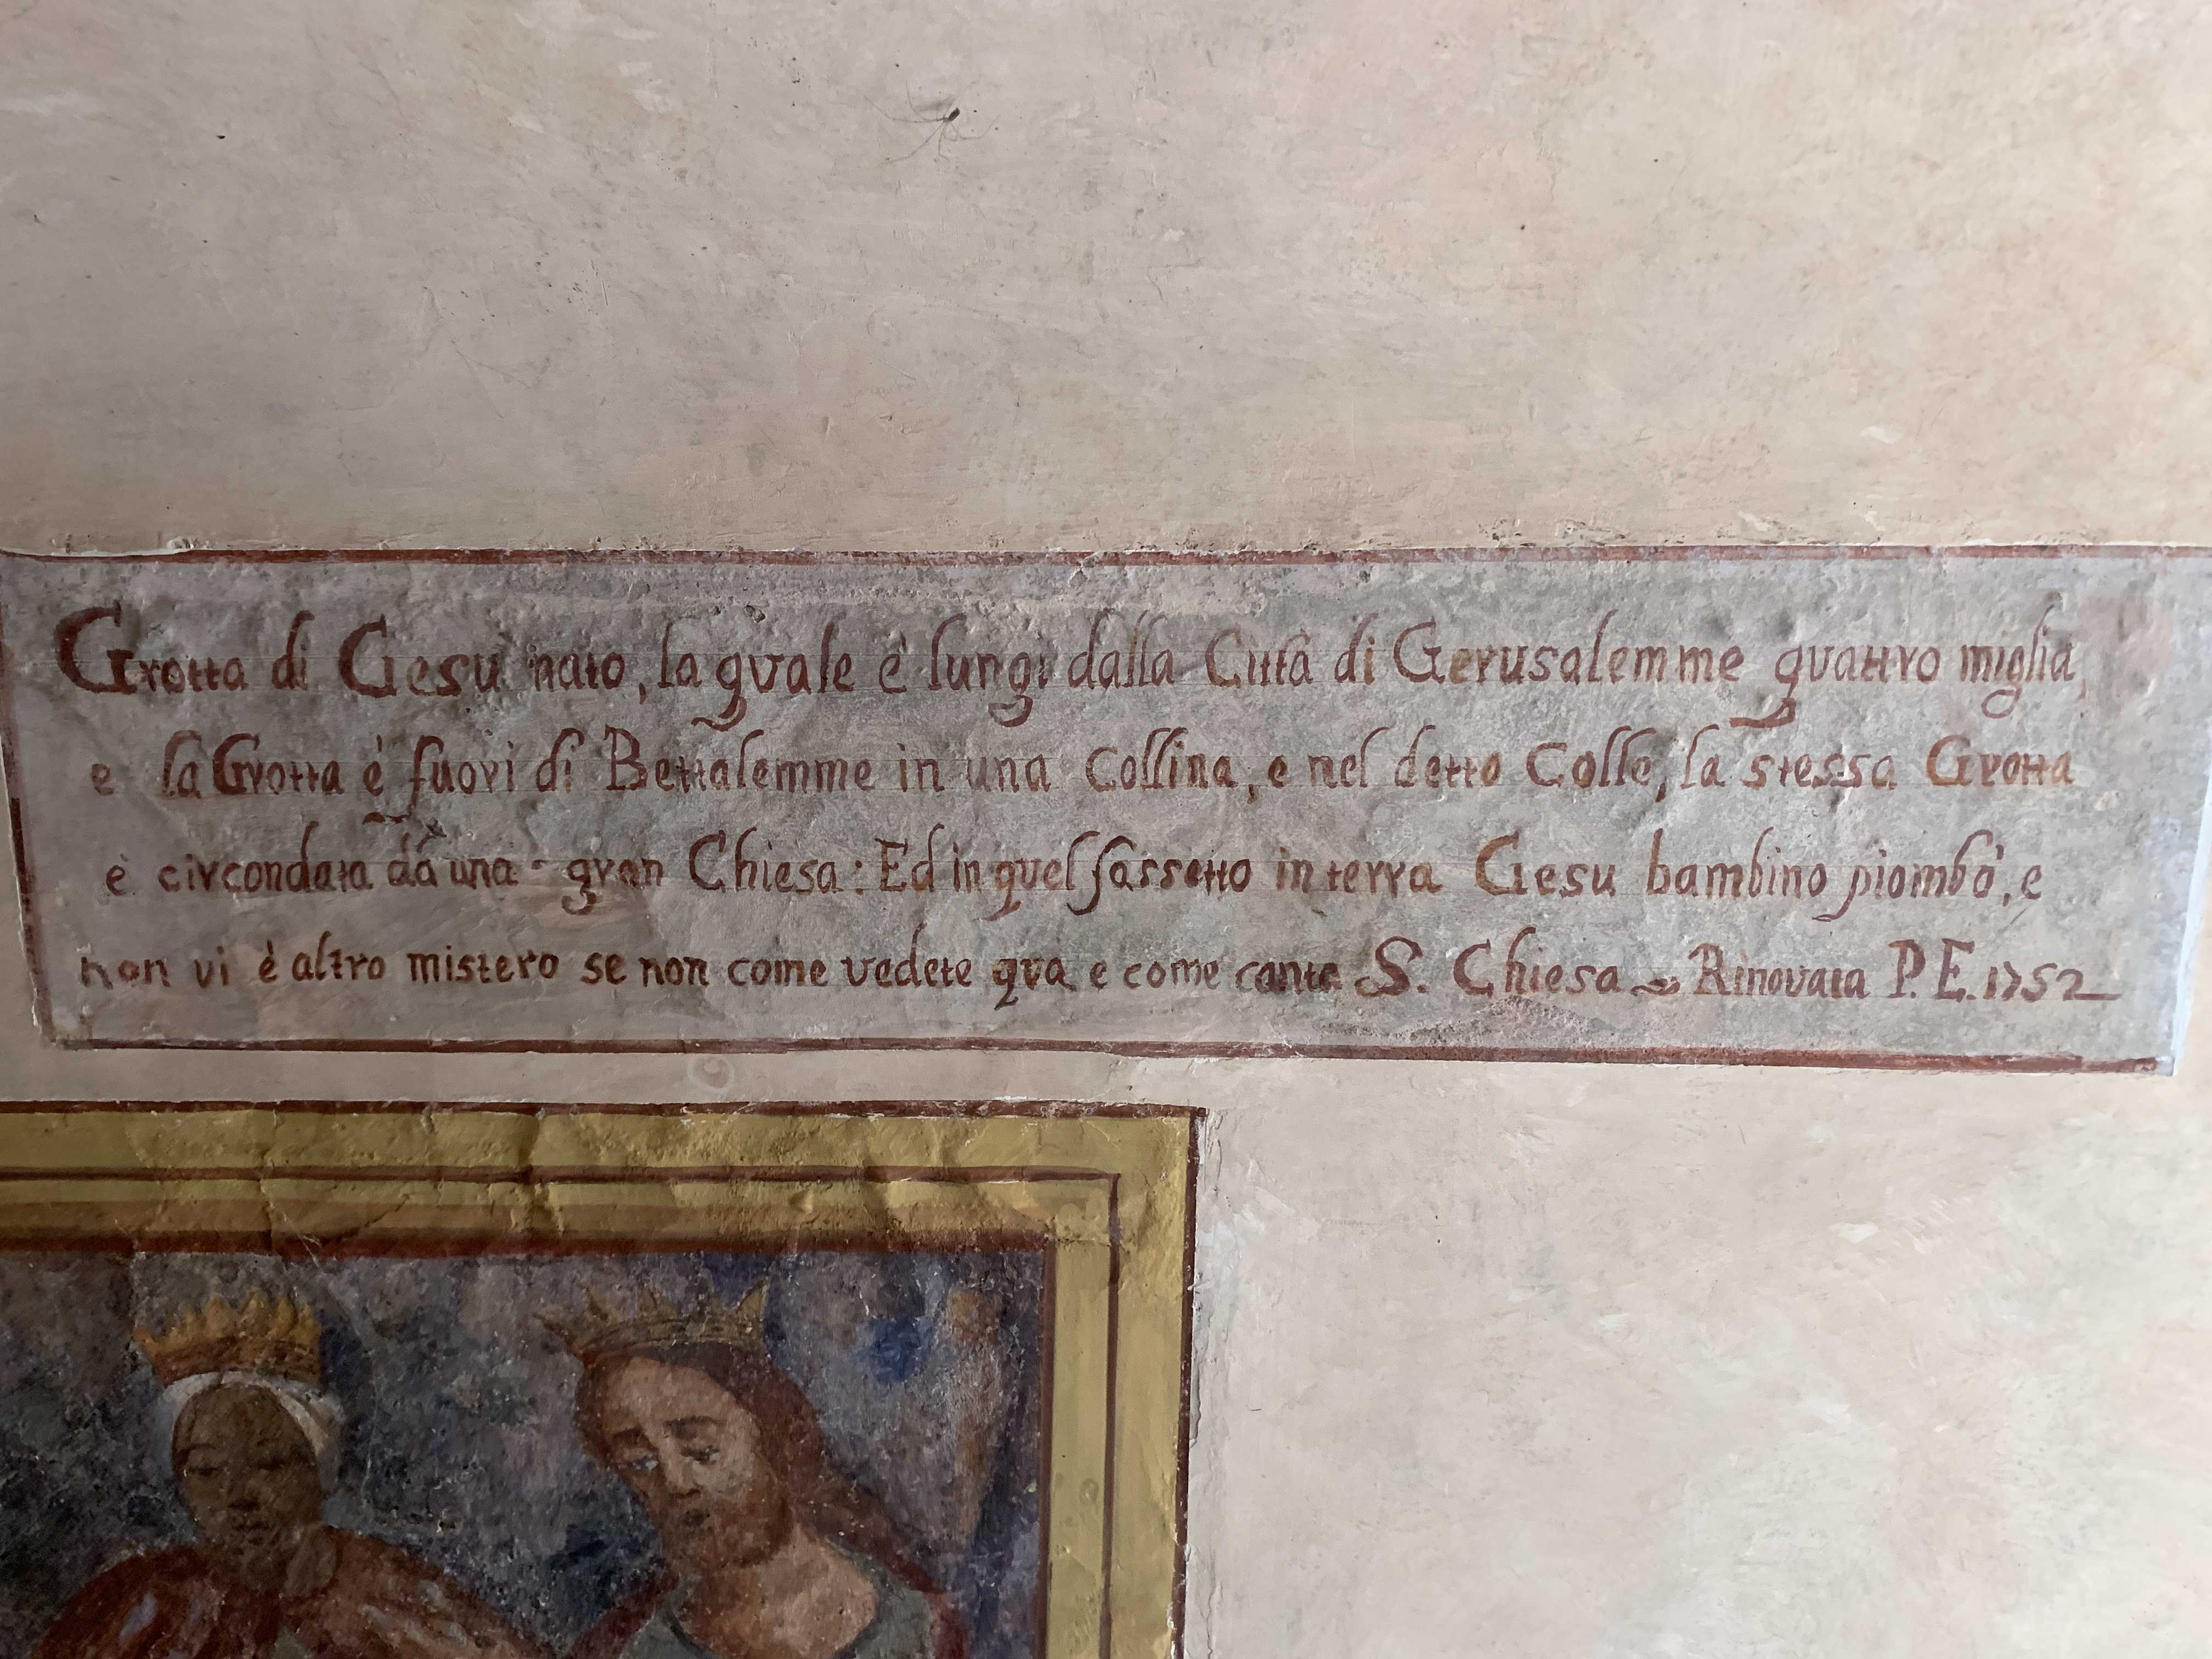 Grotta di Gesu nato, la quale è lungi dalla Città di Gerusalemme quattro miglia,
e la Grotta è fuori di Bettalemme in una Collina, e nel detto Colle, la stessa Grotta
è circondata dà una gran Chiesa: Ed in quel sassetto in terra Gesu bambino piombò, e
non vi è altro mistero se non come vedete qua e come canta S. Chiesa ~ Rinovata P. E. 1752